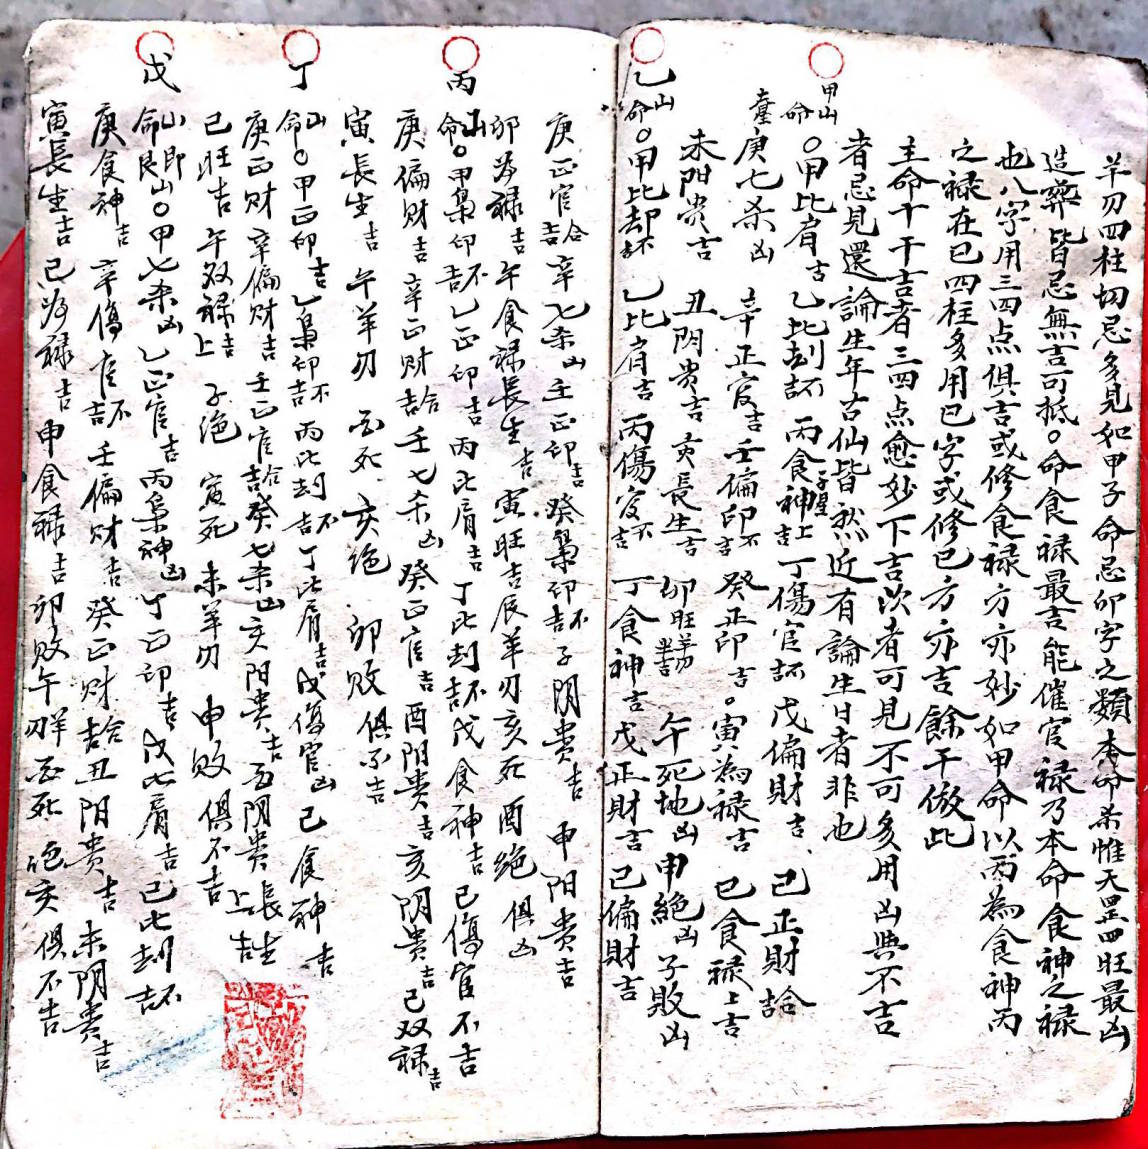 羊刃四柱切忌多見如甲子命忌卯字之類本命杀惟天罡四旺最凶
造葬皆忌無吉可抵。命食禄最吉能催官禄乃本命食神之禄
也八字用三四点俱吉或修食禄方亦妙如甲命以丙為食神丙
之禄在巳四柱多用巳字或修巳方亦吉餘干倣此
主命十干吉者三四点愈妙下吉次者可見不可多用凶與不吉
者忌見還論生年古仙皆然近有論生日者非也
甲山命〇甲比肩吉 乙比刦不吉 丙食神上吉 丁傷官不吉 戊偏財吉 己正財合吉
庚七杀凶 辛正官吉 壬偏印不吉 癸正印吉。寅為禄吉 巳食禄上吉
未阳贵吉 丑阴贵吉 亥長生吉 卯旺羊刃半吉 午死地凶 申絕凶 子敗凶
乙山命〇甲比刦不吉 乙比肩吉 丙傷官不吉 丁食神吉 戊正財吉 己偏財吉
庚正官合吉 辛七杀凶 壬正印吉 癸梟印不吉 子阴贵吉 申阳贵吉
卯為禄吉 午食禄長生吉 寅旺吉 辰羊刃 亥死 酉絶 俱凶
丙山命〇甲梟印不吉 乙正印吉 丙比肩吉 丁比刦不吉 戊食神吉 己傷官不吉
庚偏财吉 辛正财合吉 壬七杀凶 癸正官吉 酉阴贵吉 亥阴贵吉 巳双禄吉
寅長生吉 午羊刃 酉死 亥绝 卯败 俱不吉
丁山命〇甲正印吉 乙梟印不吉 丙比刦不吉 丁比肩吉 戊傷官凶 己食神吉
庚正财 辛偏财吉 壬正官合吉 癸七杀凶 亥阳贵吉 酉阴贵長生上吉
己旺吉 午双禄上吉 子绝 寅死 未羊刃 申败 俱不吉
戊山命即艮山〇甲七杀凶 乙正官吉 丙梟神凶 丁正印吉 戊比肩吉 己比刦不吉
庚食神吉 辛傷官不吉 壬偏财吉 癸正财合吉 丑阳贵吉 未阴贵吉
寅長生吉 巳為禄吉 申食禄吉 卯败 午羊刃 酉死 绝亥 俱不吉